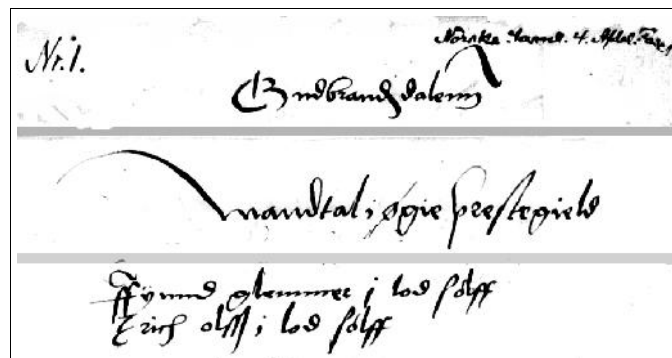 Nr. 1.
Norske Saml. 4.
Gudbrandzdalenn
mandtal i øgie prestegield
ffynnd glemmer j lod sølff
Erich olss j lod sølff